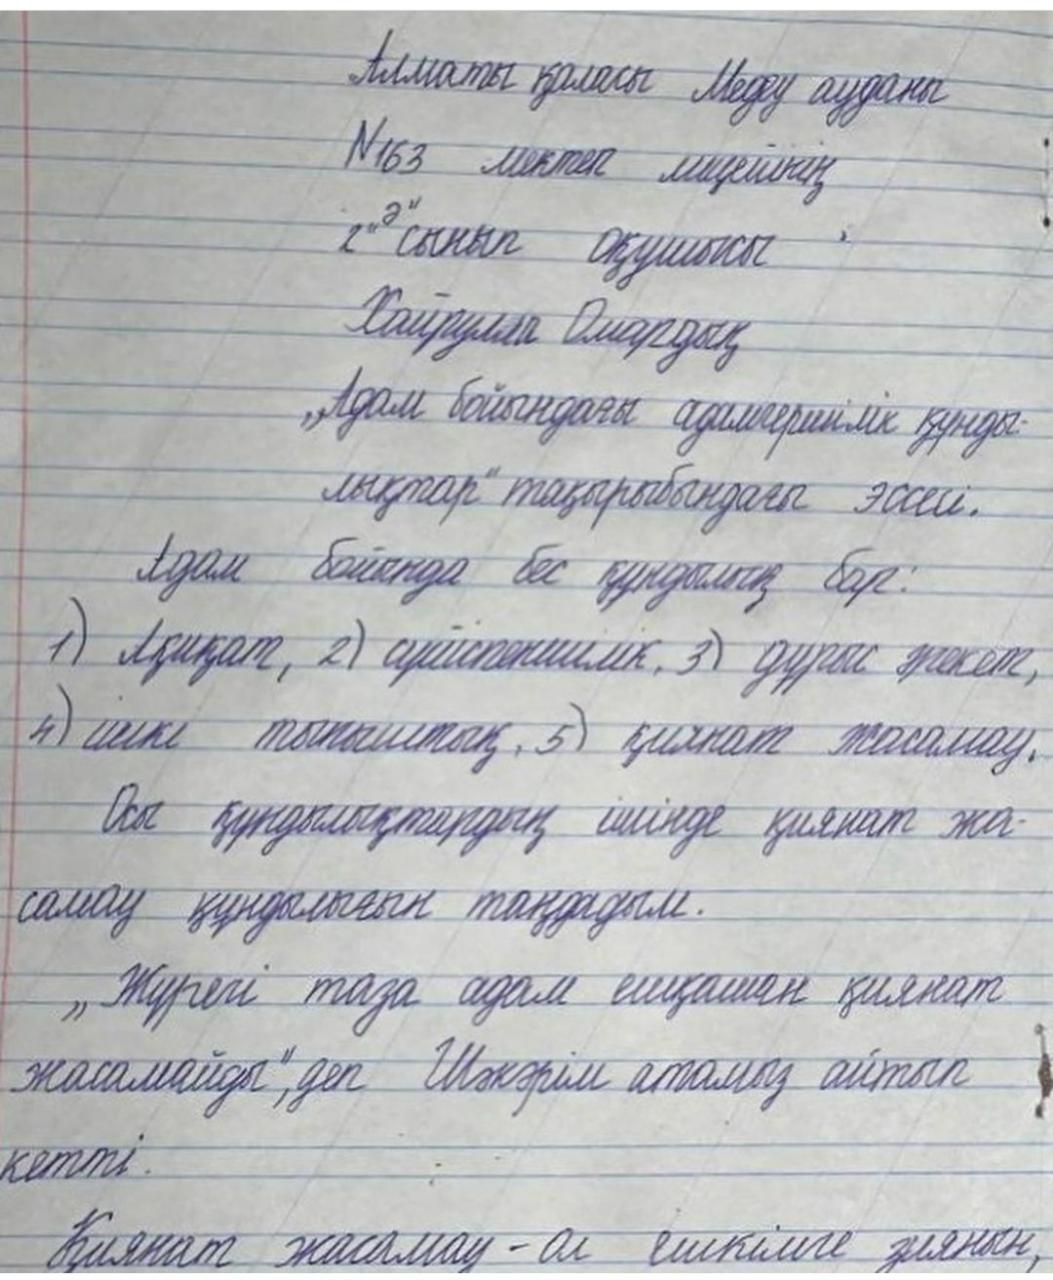 Алматы қаласы Медеу ауданы
N163 мектеп лицейінің
2"Ә" сынып оқушысы
Хайрулла Омардың
„Адам бойындағы адамгершілік құнды-
лықтар" тақырыбындағы эссесі.
Адам бойында бес құндылық бар:
1) Ақиқат, 2) сүйіспеншілік, 3) дұрыс әрекет,
4) ішкі тыныштық, 5) қиянат жасамау.
Осы құндылықтардың ішінде қиянат жа-
самау құндылығын таңдадым.
„Жүрегі таза адам ешқашан қиянат
жасамайды", деп Шәкәрім атамыз айтып
кетті.
Қиянат жасамау - ол ешкімге зиянын,